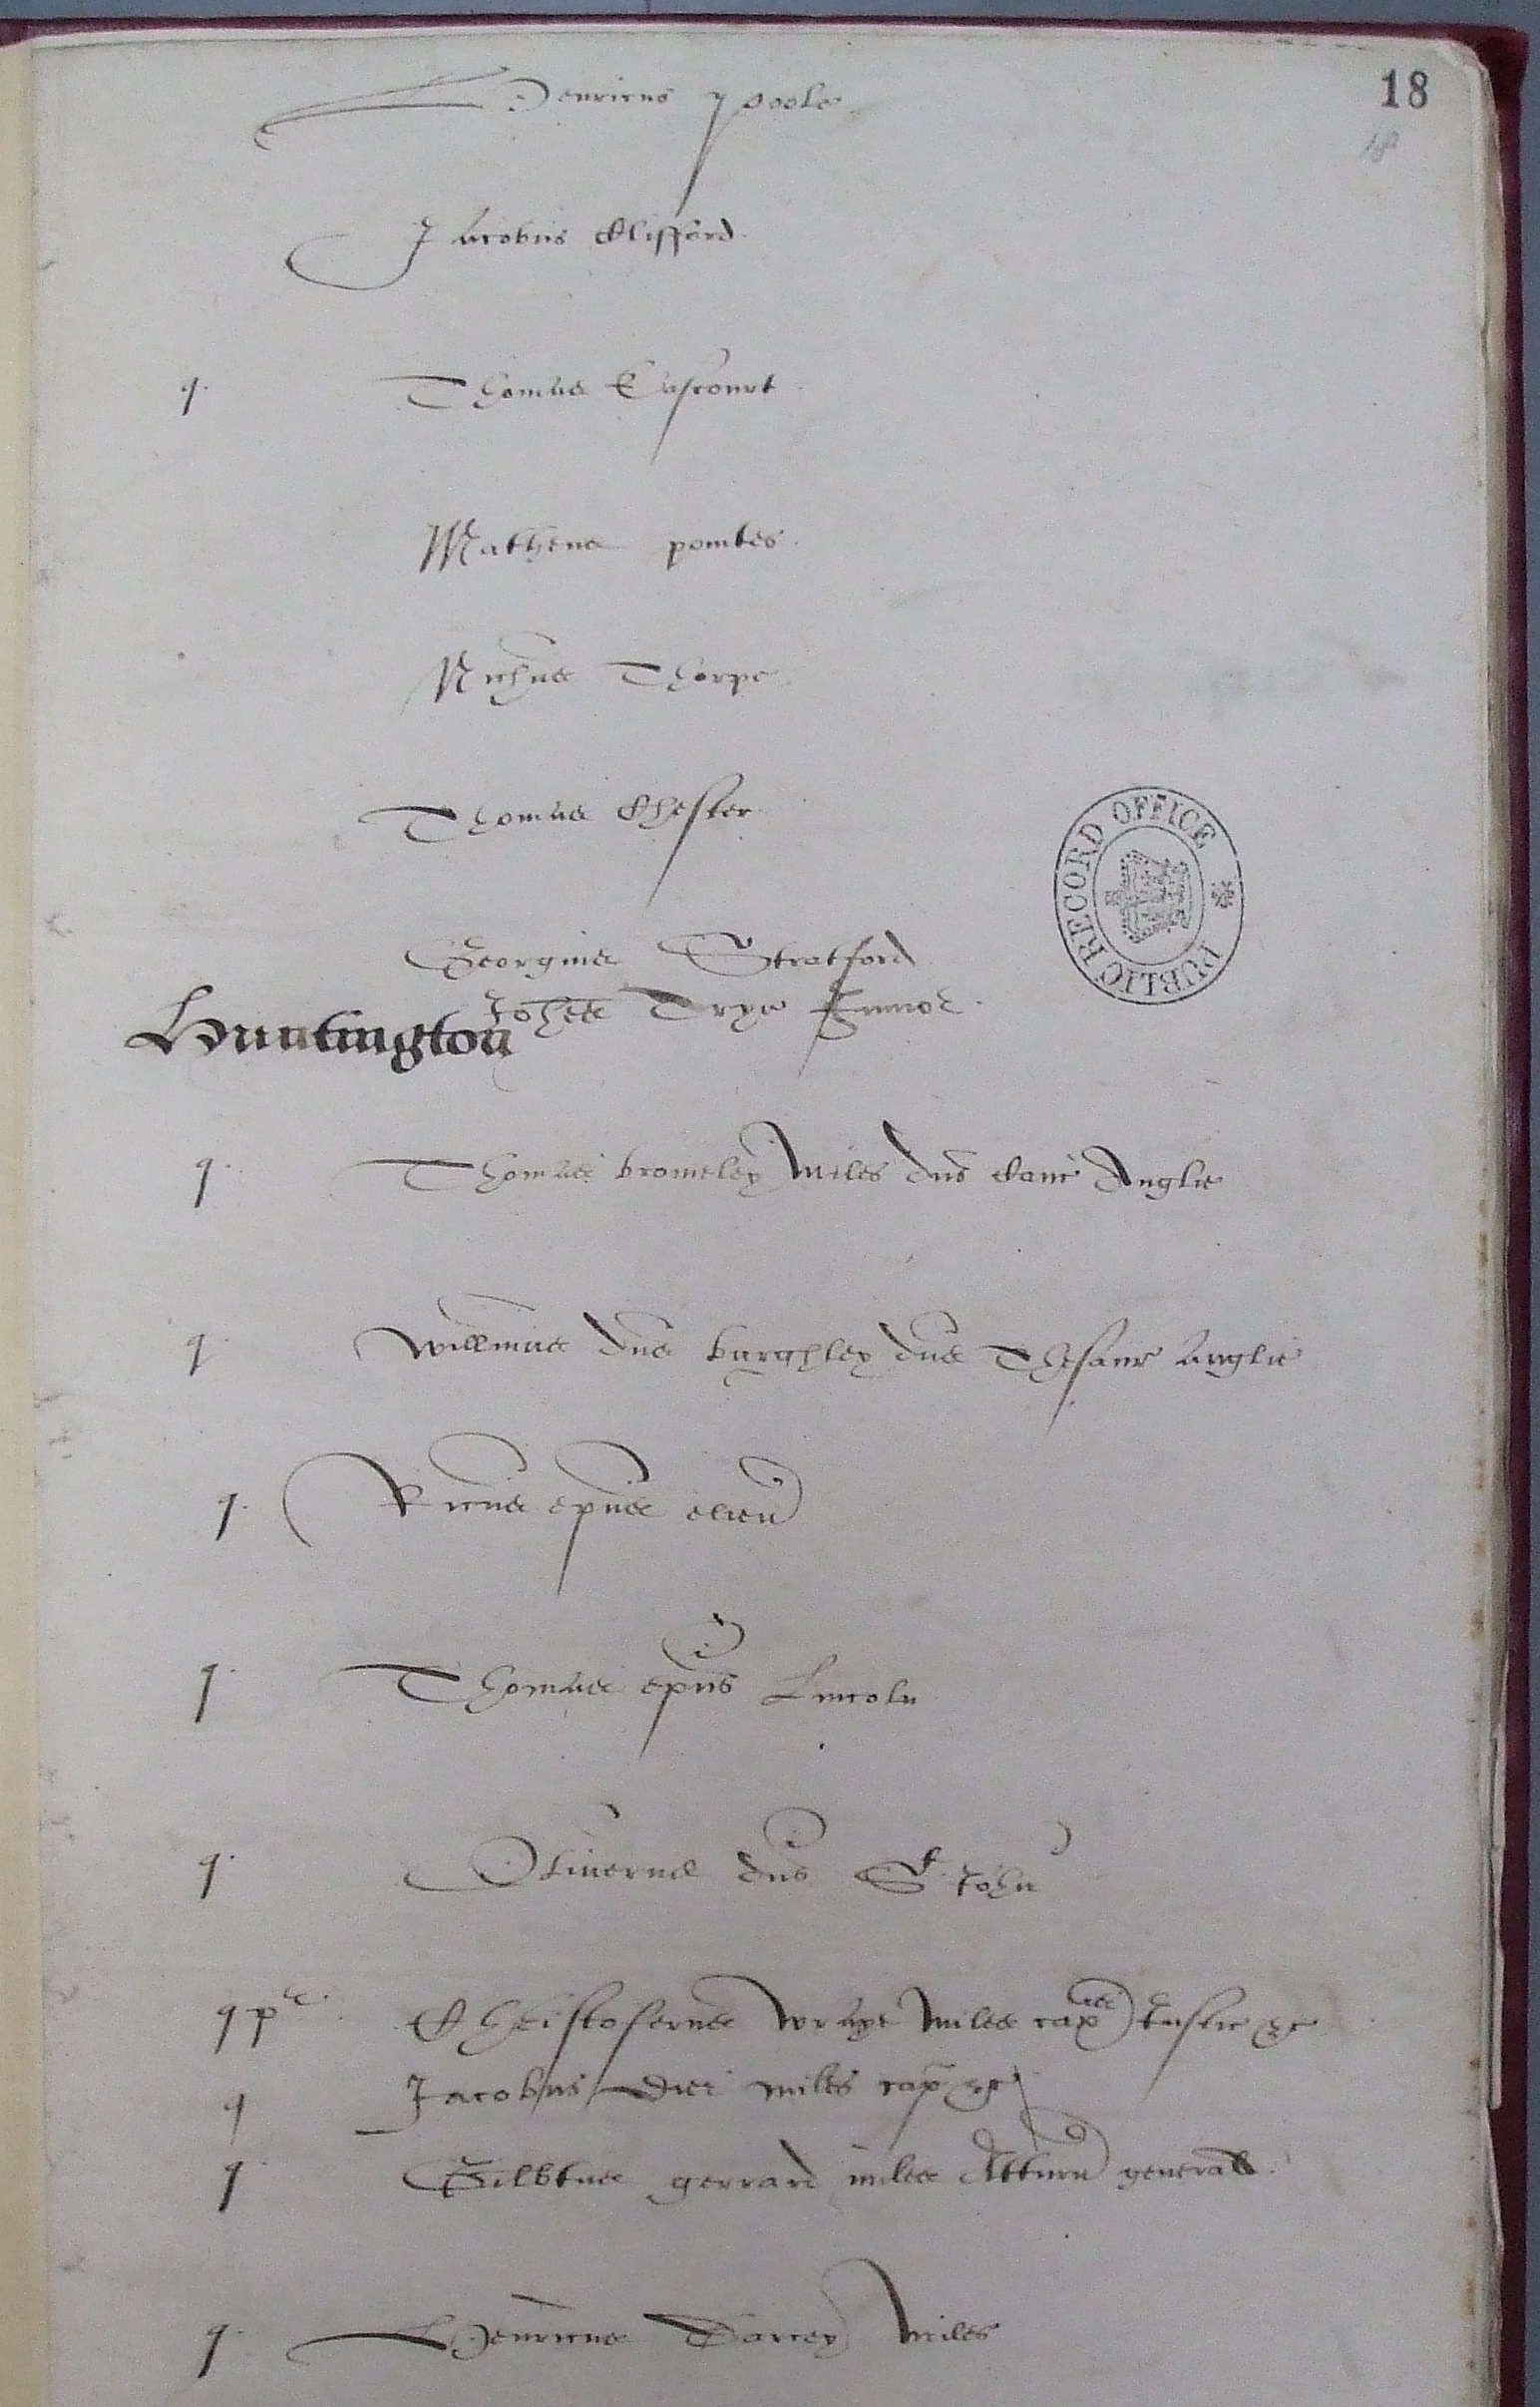 18
18
Henricus Poole
Jacobus Clifford
q. Thomas Estcourt
Matheus pointes
Nichus Thorpe
Thomas Chester
Georgius Stratford
Johes Trye Junior
Huntington
q. Thomas bromeley miles dns Canc Anglie
q. Willmus dns burghley dns Thesaur Anglie
q. Ricus epus elien
q. Thomas epus Lincoln
q. Oliverus dns St John
q pc. Christoferus wraye miles cap Justic &c
q Jacobus Dier miles cap &c
q. Gilbtus gerrard miles Atturn generall
q. Henricus Darcey miles
PUBLIC RECORD OFFICE